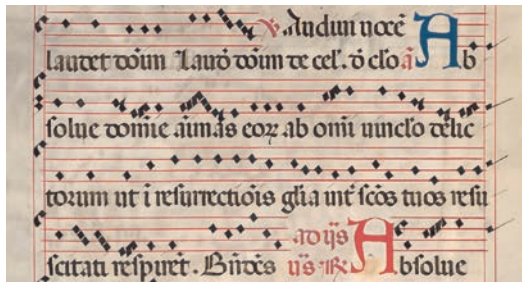 Audiui uocē
laudet dōm Laud̄ dōm de cel. d̄ cl̄o ā Ab
solue domīe aīmas eoꝝ ab omī uincl̄o delic
torum ut ī resurrectiōis gl̄ia int̄ sc̄os tuos resu
scitati respiret. Bn̄dc̄s ad ijs
ijs R̄ Absolue